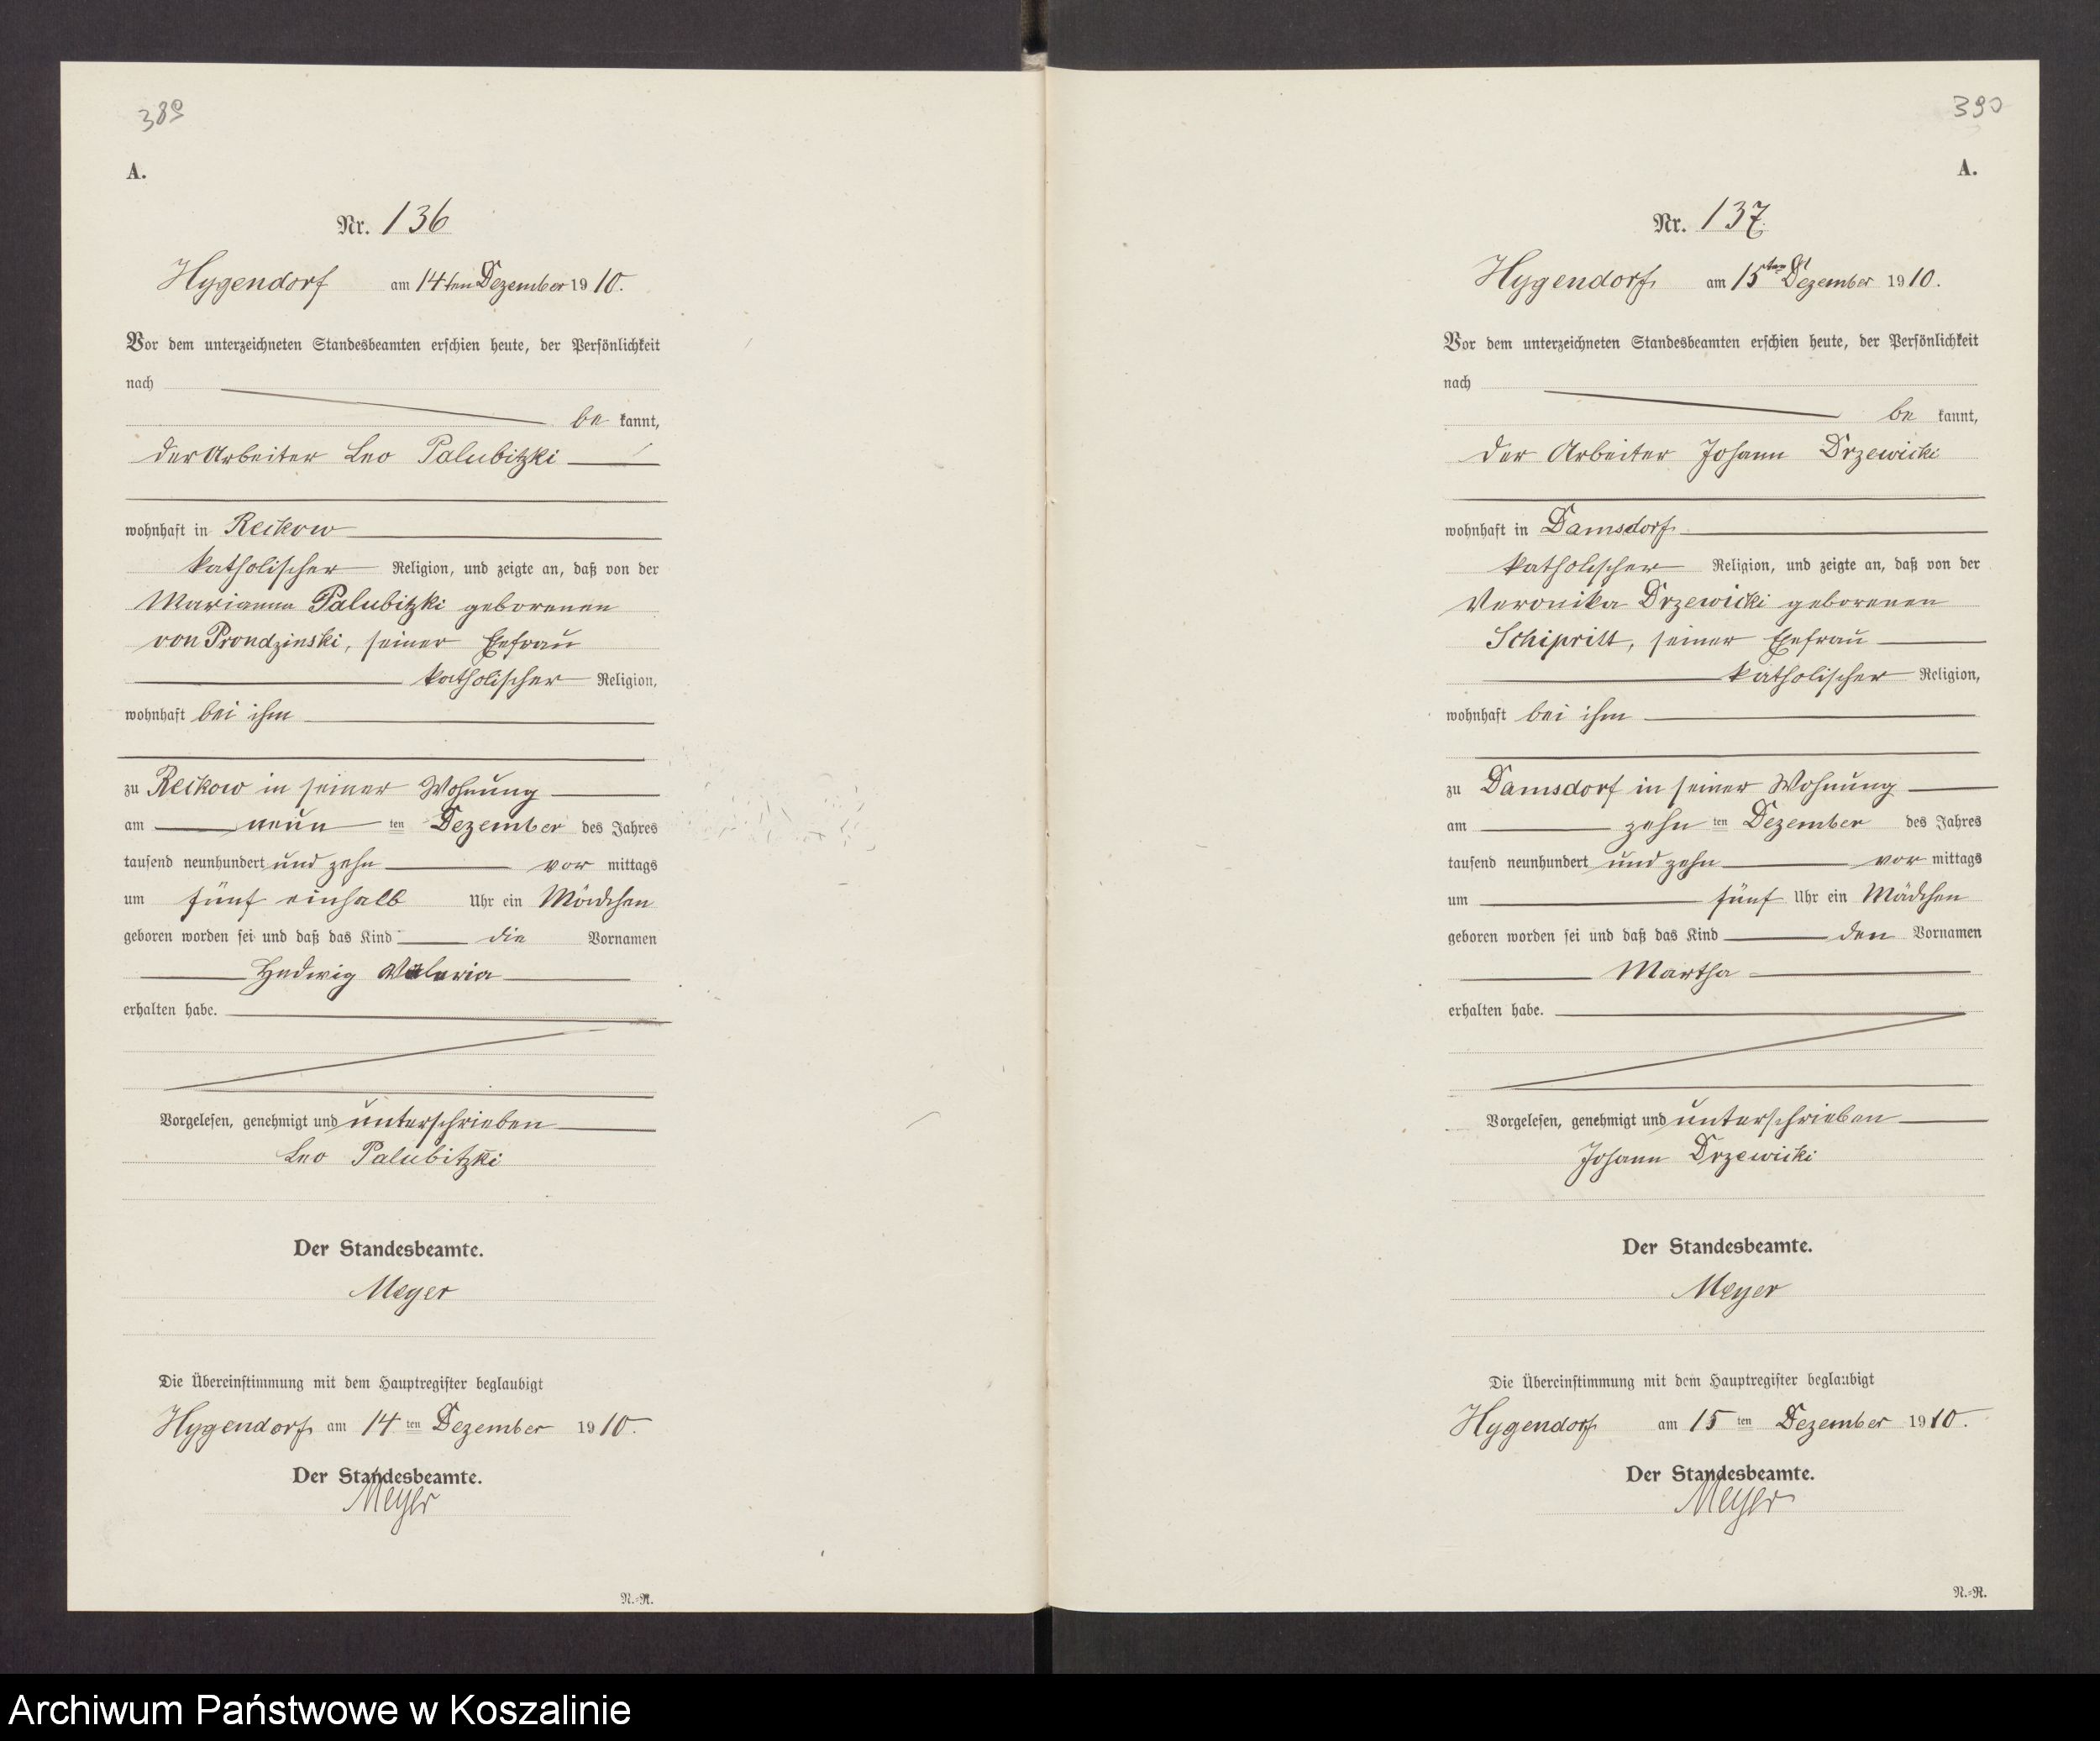 389
A.
Nr. 136
Hygendorf am 14ten Dezember 1910.
Vor dem unterzeichneten Standesbeamten erschien heute, der Persönlichkeit
nach
be kannt,
der Arbeiter Leo Palubitzki
wohnhaft in Reckow
katholischer Religion, und zeigte an, daß von der
Marianna Palubitzki geborenen
von Prondzinski, seiner Ehefrau
katholischer Religion,
wohnhaft bei ihm
zu Reckow in seiner Wohnung
am neun ten Dezember des Jahres
tausend neunhundert und zehn vor mittags
um fünf einhalb Uhr ein Mädchen
geboren worden sei und daß das Kind die Vornamen
Hedwig Valeria
erhalten habe.
Vorgelesen, genehmigt und unterschrieben
Leo Palubitzki
Der Standesbeamte.
Meyer
Die Übereinstimmung mit dem Hauptregister beglaubigt
Hygendorf am 14 ten Dezember 1910.
Der Standesbeamte.
Meyer
N.-R.
390
A.
Nr. 137
Hygendorf am 15ten Dezember 1910.
Vor dem unterzeichneten Standesbeamten erschien heute, der Persönlichkeit
nach
be kannt,
der Arbeiter Johann Drzewicki
wohnhaft in Damsdorf
katholischer Religion, und zeigte an, daß von der
Veronika Drzewicki geborenen
Schipritt, seiner Ehefrau
katholischer Religion,
wohnhaft bei ihm
zu Damsdorf in seiner Wohnung
am zehn ten Dezember des Jahres
tausend neunhundert und zehn vor mittags
um fünf Uhr ein Mädchen
geboren worden sei und daß das Kind den Vornamen
Martha
erhalten habe.
Vorgelesen, genehmigt und unterschrieben
Johann Drzewicki
Der Standesbeamte.
Meyer
Die Übereinstimmung mit dem Hauptregister beglaubigt
Hygendorf am 15 ten Dezember 1910.
Der Standesbeamte.
Meyer
N.-R.
Archiwum Państwowe w Koszalinie